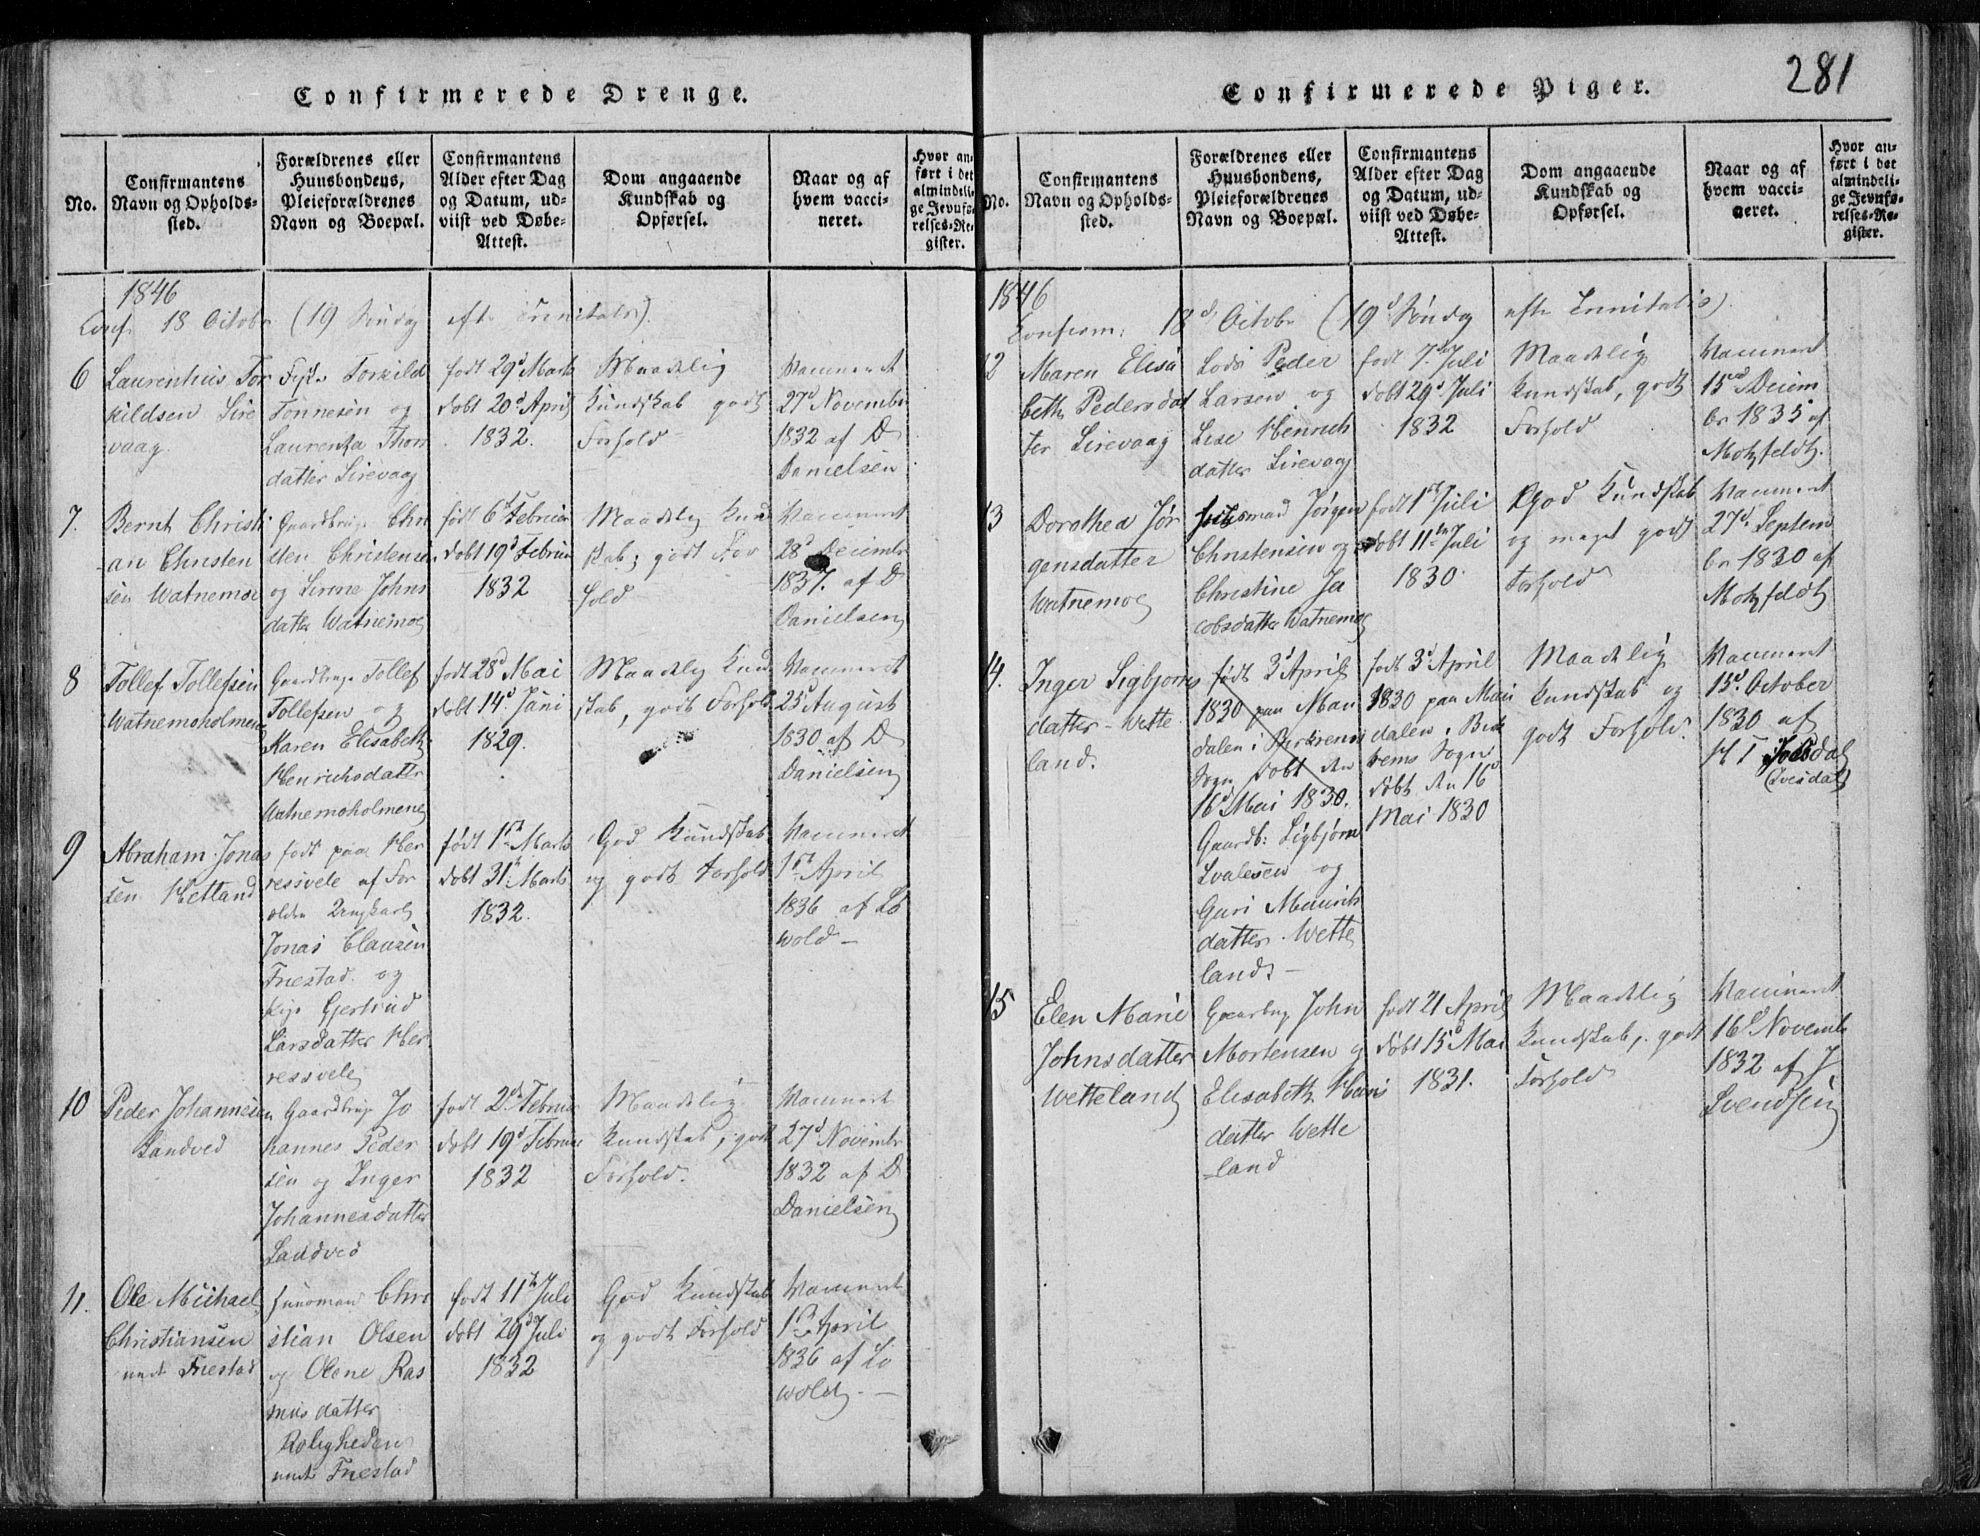 281
Confirmerede Drenge.
No.
Confirmantens
Navn og Opholds-
sted.
Forældrenes eller
Huusbondens,
Pleieforældrenes
Navn og Boepæl.
Confirmantens
Alder efter Dag
og Datum, ud-
viist ved Døbe-
Attest.
Dom angaaende
Kundskab og
Opførsel.
Naar og af
hvem vacci-
neret.
Hvor an-
ført i det
almindeli-
ge Jevnfø-
relses-Re-
gister.
1846
Conf. 18 Octobr (19 Søndag efter Trinitatis).
6
Laurenhus Tor
kildsen Sire
vaag.
Torkild
Tønnesen og
Laurentza Thom
datter Sirevaag
født 29d Marts
døbt 20d April
1832.
Maadelig
Kundskab godt
Forhold
Vaccineret
27d Novembr
1832 af D
Danielsen
7.
Bernt Christi
an Christen
sen Watnemoe
Gaardbrug. Chri
sten Christensen
og Sirene Johns
datter Watnemoe
født 6t Februar
døbt 19d Februar
1832
Maadelig Kund
skab; godt For
hold
Vaccineret
28d Decembr
1837. af D
Danielsen
8
Tollef Tollefsen
Watnemoholmene
Gaardbrug. Tollef
Tollefsen og
Karen Elisabeth
Henrichsdatter
Watnemoholmene
født 28d Mai
døbt 14d Juni
1829.
Maadelig Kund
skab, godt Forhold
Vaccineret
25d August
1830 af D
Danielsen
9
Abraham Jonas
sen Hetland
født paa Her
resvele af For
ældre Ungkarl
Jonas Clausen
Fuestad og
Pige Gjertrud
Larsdatter Her
resvele
født 1ste Marts
døbt 31te Marts
1832.
God Kundskab
og godt Forhold
Vaccineret
1ste April
1836 af Lo
wold –
10
Peder Johannesen
Sandved
Gaardbrug. Jo
hannes Peder
sen og Inger
Johannesdatter
Sandved
født 2d Februar
døbt 19d Februar
1832
Maadelig
Kundskab, godt
Forhold.
Vaccineret
27d Novembr
1832 af D
Danielsen
11.
Ole Michael
Christiansen
undr Fuestad
Huusmand Chri
stian Olsen
og Olene Ras
musdatter
Roligheden
undr Fuestad
født 11te Juli
døbt 29d Juli
1832
God Kundskab
og godt Forhold
Vaccineret
1ste April
1836 af Lo
wold. –
Confirmerede Piger.
No.
Confirmantens
Navn og Opholds-
sted.
Forældrenes eller
Huusbondens,
Pleieforældrenes
Navn og Boepæl.
Confirmantens
Alder efter Dag
og Datum, ud-
viist ved Døbe-
Attest.
Dom angaaende
Kundskab og
Opførsel.
Naar og af
hvem vacci-
neret.
Hvor an-
ført i det
almindeli-
ge Jevnfø-
relses-Re-
gister.
1846
Confirm: 18d Octobr (19d Søndag efter Trinitatis).
12
Maren Elisa
beth Pedersdat
ter Sirevaag
Lods Peder
Larsen og
Lise Henrich
datter Sirevaag
født 7d Juli
døbt 29d Juli
1832
Maadelig
Kundskab, godt
Forhold
Vaccineret
15d Decem
br 1835 af
Motzfeldt.
13
Dorothea Jør
gensdatter
Watnemoe
Huusmand Jørgen
Christensen og
Christine Ja
cobsdatter Watnemoe
født 1ste Juli
døbt 11te Juli
1830
God Kundskab
og meget godt
Forhold
Vaccineret
27d Septem
br 1830 af
Motzfeldt
14.
Inger Sigbjørns
datter Wette
land.
født 3d April
1830 paa Mau
dalen i Bjerkreims
Sogn døbt den
16d Mai 1830.
Gaardb: Sigbjørn
Svalesen og
Guri Maurits
datter Wette
land. –
født 3d April
1830 paa Mau
dalen i Bjerk
rems Sogn
døbt den 16d
Mai 1830
Maadelig
Kundskab og
godt Forhold.
Vaccineret
15d October
1830 af
H T
(Ivesdal)
15
Elen Marie
Johnsdatter
Wetteland
Gaardbrug. John
Mortensen og
Elisabeth Hans
datter Wette
land
født 21 April
døbt 15d Mai
1831.
Maadelig
Kundskab, godt
Forhold
Vaccineret
16d Novemb
1832 af J
Svendsen